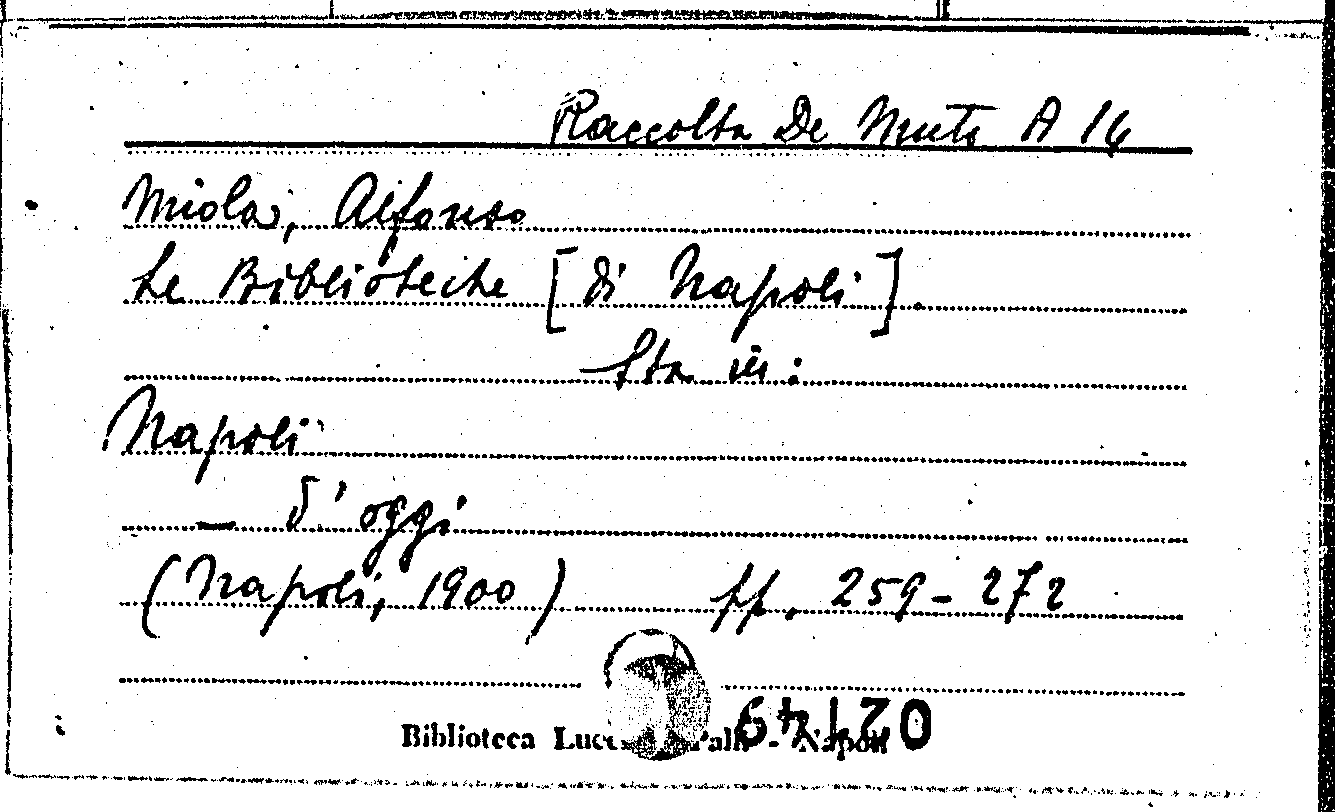 Raccolta De Muts A 14
Miola, Alfonso
Le Biblioteche [di Napoli].
Sta in:
Napoli
— d'oggi
(Napoli, 1900) pp. 259-272
Biblioteca - Napoli